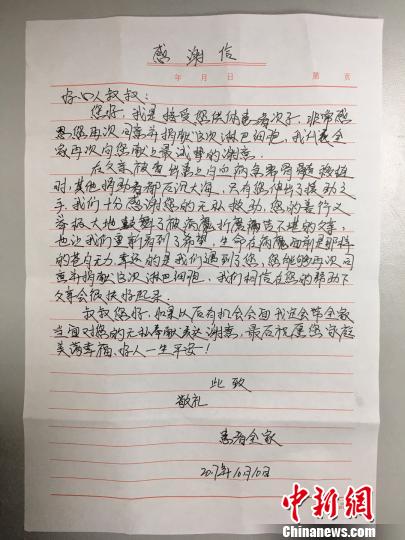 感谢信
年 月 日 第 页
好心人叔叔：
您好，我是接受您供体患者次子，非常感
恩您再次同意并捐献白次淋巴细胞，我代表全
家再次向您献上最诚挚的谢意。
在父亲被查出患上白血病急需骨髓移植
时，其他捐助者都石沉大海，只有您伸出了援助之
手，我们十分感谢您的无私救助，您的善行义
举极大地鼓舞了被病魔折磨痛苦不堪的父亲，
也让我们重新看到了希望，生命在病魔面前是那样
的苍白无力，幸运的是我们遇到了您，您能够再次同
意并捐献白次淋巴细胞，我们相信在您的帮助下
父亲会很快好起来。
叔叔您好，如果以后有机会会面我还会带全家
当面对您的无私奉献表达谢意，最后祝愿您家庭
美满幸福，好人一生平安！
此致
敬礼
患者全家
2017年10月10日
中新网
Chinanews.com